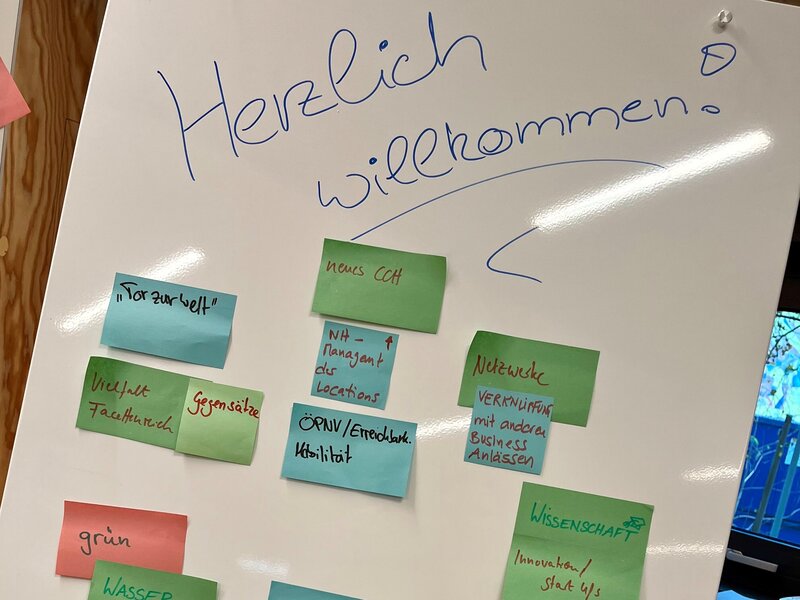 Herzlich
willkommen!
neues CCH
"Tor zur Welt"
NH-
Managent
des
Locations
Netzwerke
VERKNÜPFUNG
mit anderen
Business
Anlässen
Vielfalt
Facettenreich
Gegensätze
ÖPNV/Erreichbark.
Mobilität
WISSENSCHAFT
Innovation/
Start Ups
grün
WASSER